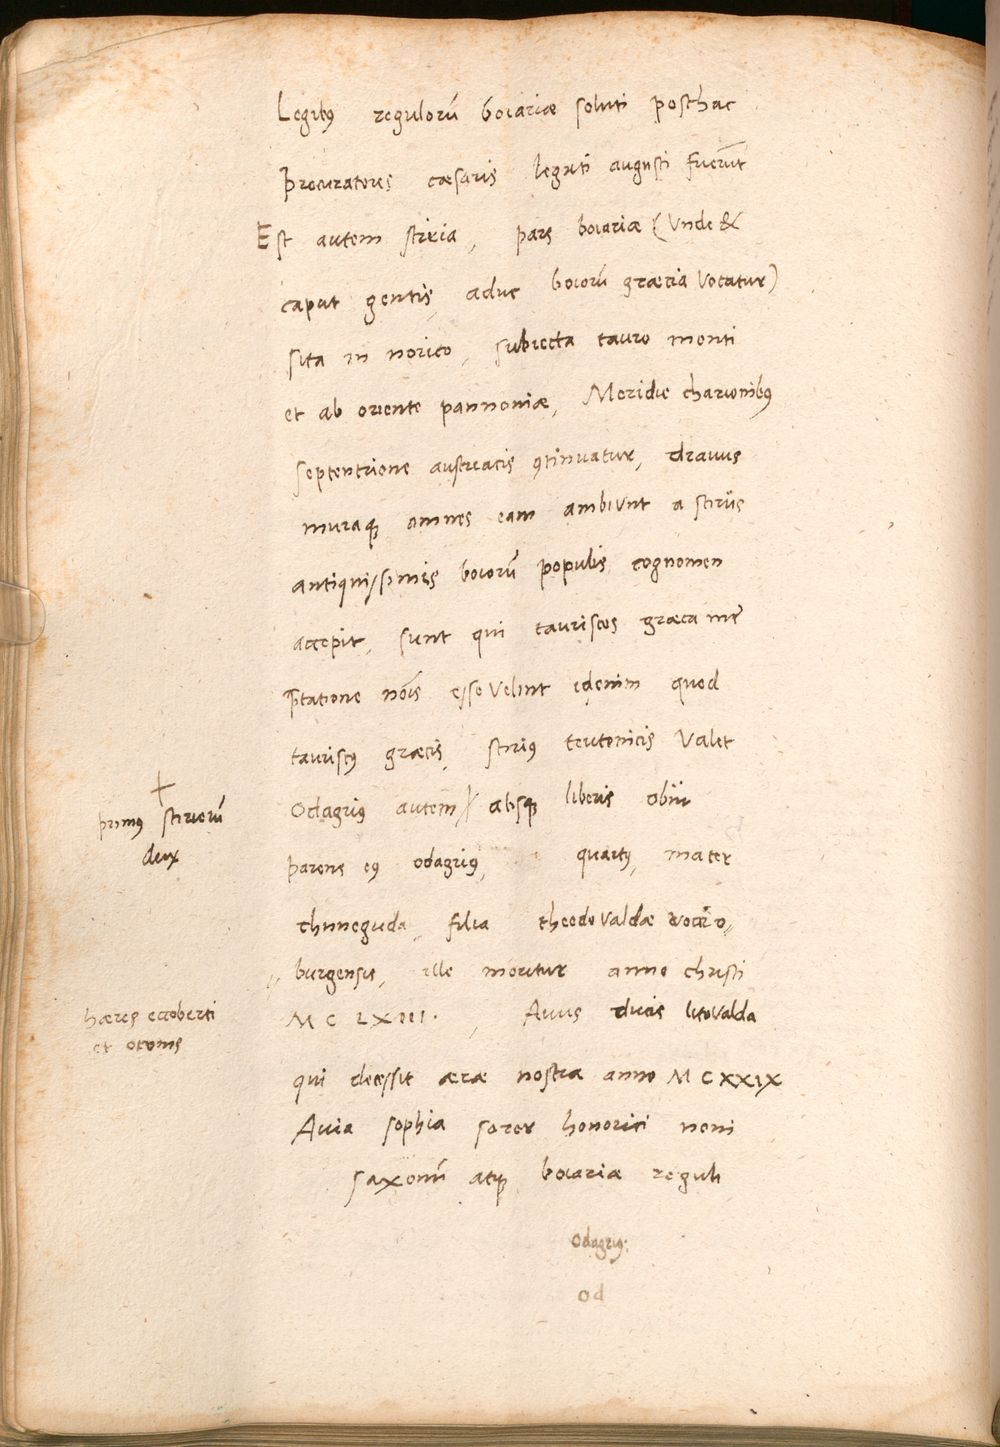 Legibꝰ regulorū boiariæ soluti posthac
Procuratores cæsaris legati augusti fuerūt
Est autem stiria, pars boiariæ (Vnde &
caput gentis, aduc boiorū græcia Vocatur)
sita in norico, subiecta tauro monti
et ab oriente pannoniæ, Meridie charionibꝰ
septentrione austriacis ꝯtinuatur, drauus
muraqꝫ amnes eam ambiunt a stiriis
antiquissimis boiorū populis cognomen
accepit, sunt qui tauriscos græca in⁓
p̄tatione nōis esse Velint edenim quod
tauriscꝰ græcis, stiriꝰ teutonicis Valet
Odagriꝰ autem absqꝫ liberis obiit
parens eꝰ odagriꝰ, quartꝰ, mater
chuneguda, filia theodoValdæ
burgensis, ille moritur anno christi
M C LXIII. , Auus ducis litoValda
qui decessit æræ nostræ anno M C XXIX
Auia sophia soror honorici noni
saxonū atqꝫ boiariæ reguli
Odagriꝰ:
Od
primꝰ stiriorū
dux
hæres eccoberti
et otonis